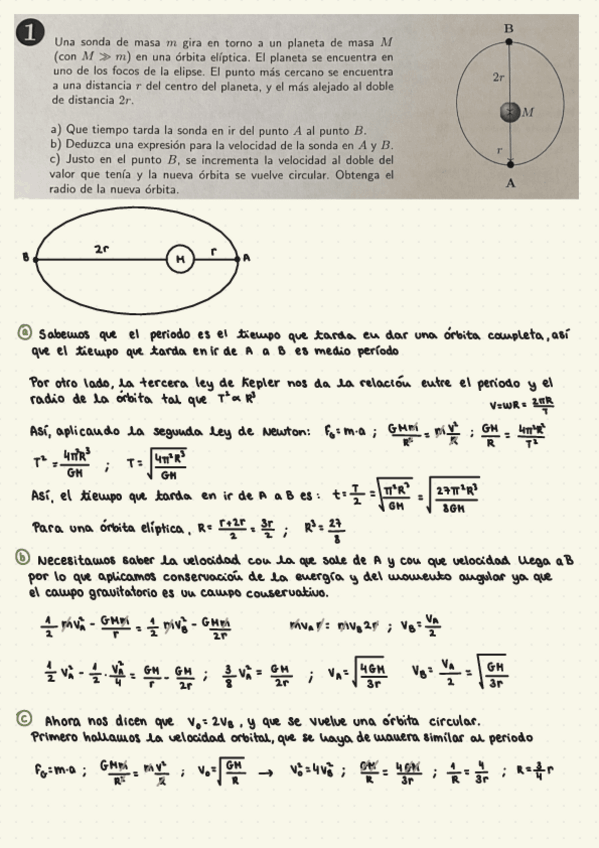 1
Una sonda de masa m gira en torno a un planeta de masa M
(con M ≫ m) en una órbita elíptica. El planeta se encuentra en
uno de los focos de la elipse. El punto más cercano se encuentra
a una distancia r del centro del planeta, y el más alejado al doble
de distancia 2r.
a) Que tiempo tarda la sonda en ir del punto A al punto B.
b) Deduzca una expresión para la velocidad de la sonda en A y B.
c) Justo en el punto B, se incrementa la velocidad al doble del
valor que tenía y la nueva órbita se vuelve circular. Obtenga el
radio de la nueva órbita.
B
2r
M
r
A
B 2r M r A
a) Sabemos que el periodo es el tiempo que tarda en dar una órbita completa, así
que el tiempo que tarda en ir de A a B es medio período
Por otro lado, la tercera ley de Kepler nos da la relación entre el periodo y el
radio de la órbita tal que T² ∝ R³
V=ωR = 2πR/T
Así, aplicando la segunda ley de Newton: F_G = m·a ; GMm/R² = m v²/R ; GM/R = 4π²R²/T²
T² = 4π²R³/GM ; T = √(4π²R³/GM)
Así, el tiempo que tarda en ir de A a B es: t = T/2 = √(π²R³/GM) = √(27π²r³/8GM)
Para una órbita elíptica, R = (r+2r)/2 = 3r/2 ; R³ = 27/8
b) Necesitamos saber la velocidad con la que sale de A y con que velocidad llega a B
por lo que aplicamos conservación de la energía y del momento angular ya que
el campo gravitatorio es un campo conservativo.
1/2 m v_A² - GMm/r = 1/2 m v_B² - GMm/2r m v_A r = m v_B 2r ; v_B = v_A/2
1/2 v_A² - 1/2 · v_A²/4 = GM/r - GM/2r ; 3/8 v_A² = GM/2r ; v_A = √(4GM/3r) v_B = v_A/2 = √(GM/3r)
c) Ahora nos dicen que v₀ = 2v_B, y que se vuelve una órbita circular.
Primero hallamos la velocidad orbital, que se haya de manera similar al periodo
F_G = m·a ; GMm/R² = m v²/R ; v₀ = √(GM/R) → v₀² = 4v_B² ; GM/R = 4GM/3r ; 1/R = 4/3r ; R = 3/4 r